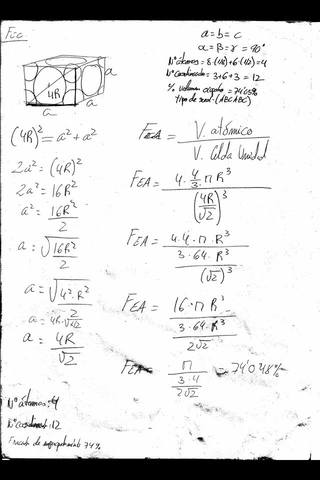 Fcc
a = b = c
α = β = γ = 90°
Nº átomos = 8·(1/8)+6·(1/2)=4
Nº coordinación = 3+6+3 = 12
% volumen ocupado = 74'05%
tipo de secu. (ABCABC)
4R
a
a
a
(4R)² = a² + a²
2a² = (4R)²
2a² = 16R²
a² = 16R² / 2
a = √(16R² / 2)
a = √(4²·R² / 2)
a = 4R·√2/2
a = 4R / √2
FEA = V. atómico / V. Celda Unidad
FEA = 4·4/3·π R³ / (4R/√2)³
FEA = 4·4·π·R³ / (3·64·R³ / (√2)³)
FEA = 16·π·R³ / (3·64·R³ / 2√2)
FEA = π / (3·4 / 2√2) = 74'048%
Nº átomos: 4
Nº coordinad: 12
Fracción de empaquetamiento 74%